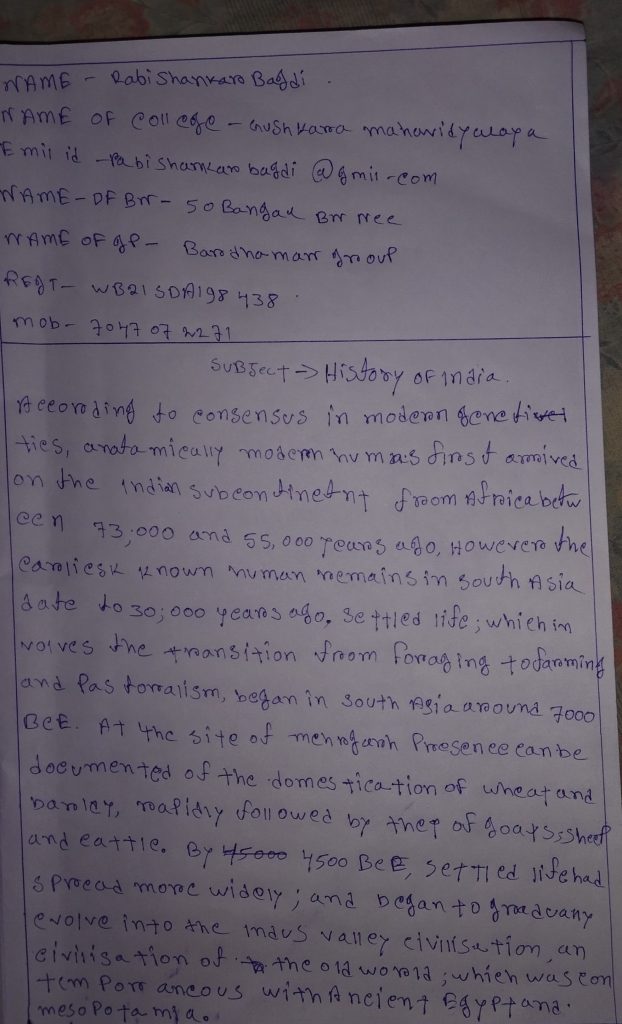 NAME - Rabi Shankar Bagdi .
NAME OF College - Gushkara mahavidyalaya
Emil id - rabi shankar bagdi @gmil-com
NAME - OF Bn - 50 Bangal Bn Ncc
NAME OF gP - Bardhaman group
REgT- WB21 SDA198 438 .
mob- 7047 07 2271
SUBJect → History OF india.
According to consensus in modern genetivei
ties, anatamically modern humas first arrived
on the indian subcontinetnt from Africa betw
een 73,000 and 55,000 years ago, However the
earliesk known human remains in south Asia
date to 30,000 years ago. Settled life; which in
volves the transition from foraging to farming
and Pastoralism, began in south Asia around 7000
BCE. At the site of mehrgarh Presence can be
documented of the domestication of wheat and
barley, rapidly followed by that of goats, sheep
and cattle. By 45000 4500 BCE, settled life had
spread more widely; and began to gradually
evolve into the indus valley civilisation, an
civilisation of the old world; which was con
temporaneous with Ancient Egypt and.
mesopotamia.